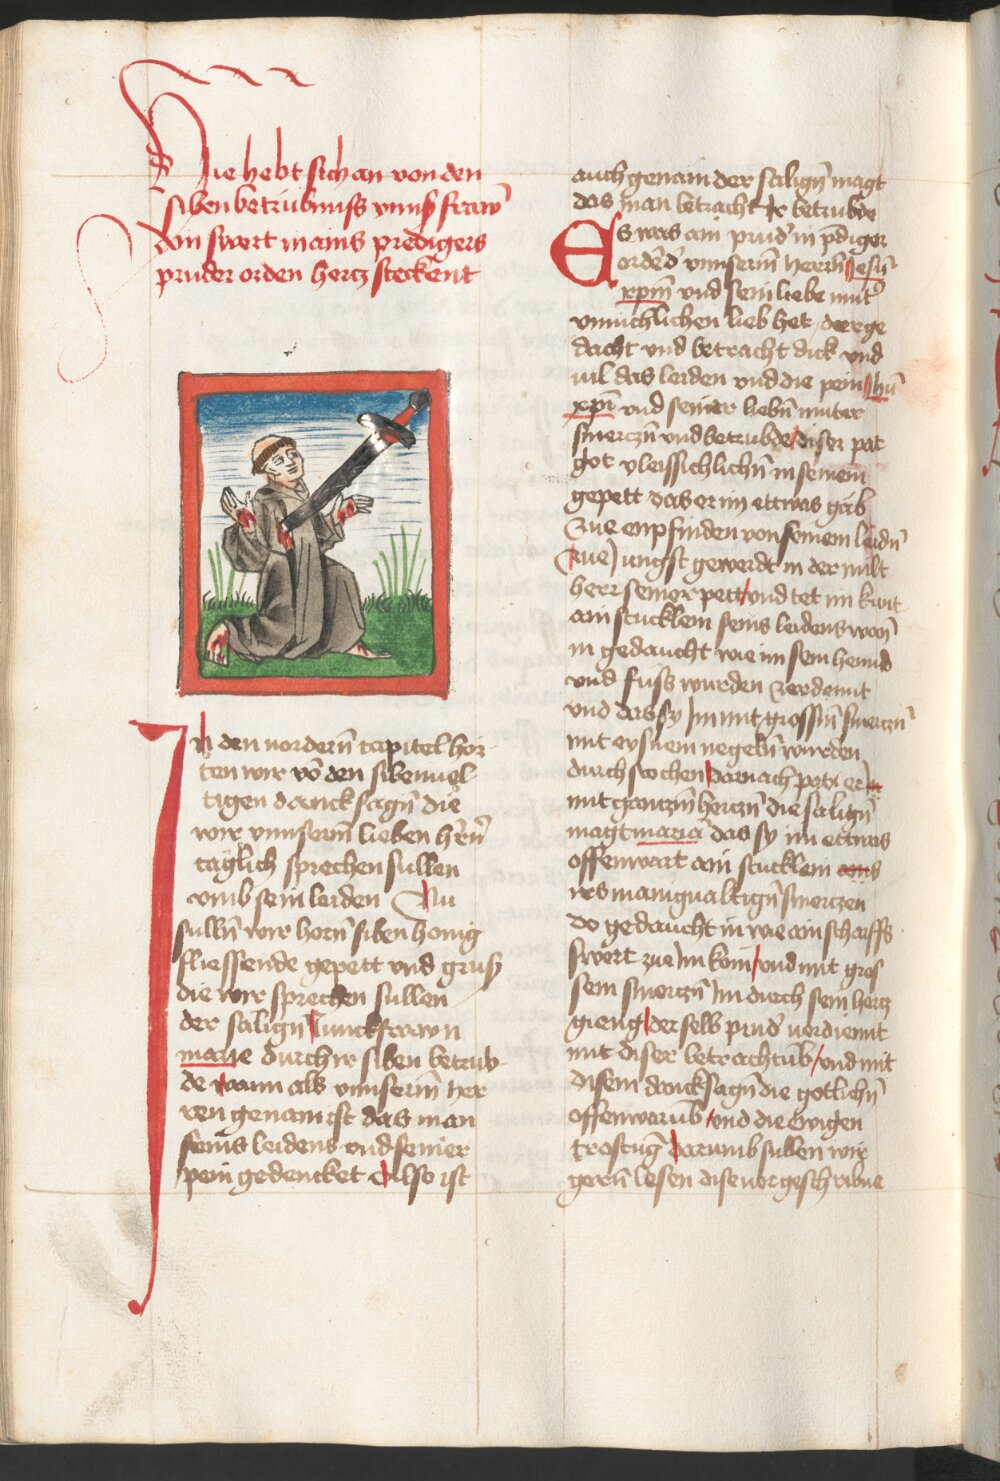 Hie hebt sich an von den
siben betrubnuss vnnser frawn̄
Ain swert mains predigers
pruder orden hertz steckent
In den vordern̄ capitel hor
ten wir vō den siben uel
tigen danck sagn̄ die
wir vnnserm̄ lieben hr̄n̄
täglich sprechen sullen
vmb sein leiden Nu
sulln̄ wir horn̄ siben honig
fliessende gepett vnd gruß
die wir sprechen sullen
der salign̄ Junckfrawn
marie durch ir siben betrub
de wann als vnnserm̄ her
ren genam ist das man
seins leidens vnd seiner
pein gedencket Also ist
auch genam der salign̄ magt
das man betracht ir betrubde
Es was ain prud' in p̄diger
orden̄ d' vnnserm̄ herrn̄ Jesū
xpm̄ vnd sein liebe mut'
vnmichlichen lieb het der ge
dacht vnd betracht dick vnd
uil das leiden vnd die pein Jhū
xp̄i vnd seiner liebn̄ muter
smerczn̄ vnd betrubde diser pat
got vleissichlichn̄ in seinem
gepett das er im ettwas gäb
zue enpfinden von seinem leidn̄
zue Jungst gewerdt in der milt
herr seiner pett vnd tet im kunt
ain stucklein seins leidens wan̄
in gedaucht wie im sein hennd
vnd fuss wurden zerdennt
vnd das sy Jm mit grossn̄ smerczn̄
mit eysnem negeln̄ wurden
durchstochen darnach pett er
mit ganczm̄ herczn̄ die salign̄
magt maria das sy im ettwas
offenwart ain stucklein
irs manigualtign̄ smerczen
do gedaucht in wie ain scharffs
swert zue Jm kom vnd mit gros
sem smerczn̄ Jm durch sein hertz
gieng der selb prud' verdiennt
mit diser betrachtūb vnd mit
disem dancksagn̄ die gotlichn̄
offenwarūb vnd die ewigen
trostūg darumb sullen wir
gern̄ lesen dise vorgeschribne